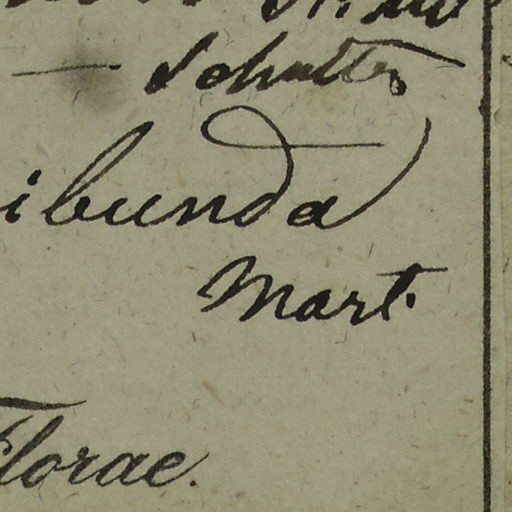 — Schultes
ibunda
Mart.
Florae.